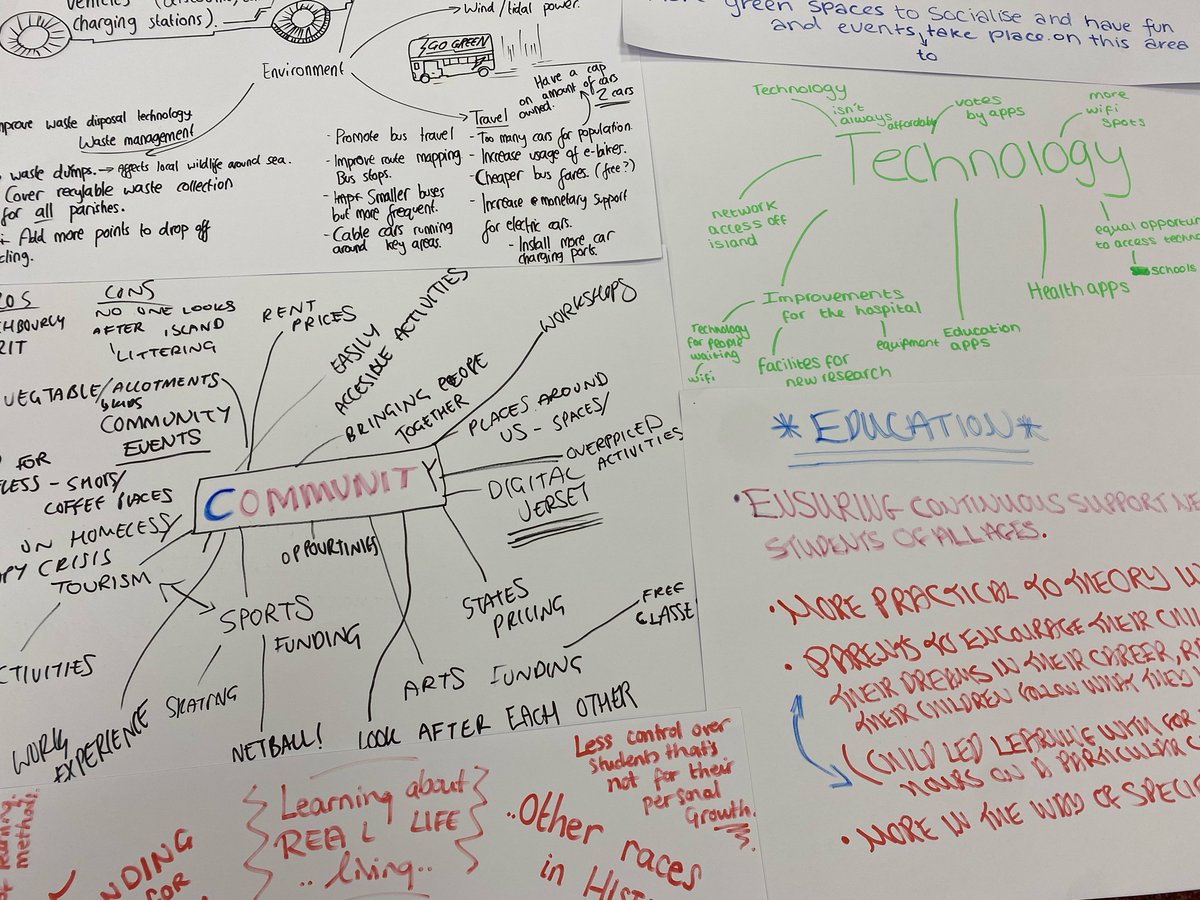 vehicles
charging stations).
Wind/tidal power.
GO GREEN
Environment
improve waste disposal technology
Waste management
waste dumps. → affects local wildlife around sea.
Cover recylable waste collection
for all parishes.
Add more points to drop off
- Promote bus travel
- Improve route mapping
Bus stops.
Smaller buses
but more frequent.
- Cable cars running
around key areas.
Have a cap
on amount of cars
owned.
2 cars
Travel
- Too many cars for population.
- Increase usage of e-bikes.
- Cheaper bus fares. (free?)
- Increase monetary support
for electric cars.
- Install more car
charging ports.
green spaces to socialise and have fun
and events, take place on this area
to
Technology
isn't
always affordable
votes
by apps
more
wifi
spots
Technology
network
access off
island
Improvements
for the hospital
Technology
for people
waiting
wifi
facilites for
new research
equipment
Education
apps
Health apps
equal
to access
schools
CONS
NO ONE LOOKS
AFTER ISLAND
LITTERING
RENT
PRICES
EASILY
ACCESIBLE ACTIVITIES
BRINGING PEOPE
TOGETHER
WORKSHOPS
PLACES AROUND
US - SPACES/
OVERPPICED
ACTIVITIES
DIGITAL
JERSET
VEGTABLE/ALLOTMENTS
COMMUNITY
EVENTS
FOR
COFFEE PLACES
ON HOMELESS/
CRISIS
TOURISM
COMMUNITY
OPPOURTINIES
SPORTS
FUNDING
STATES
PRICING
FREE
CLASSE
ARTS FUNDING
SKATING
WORK
EXPERIENCE
NETBALL!
LOOK AFTER EACH OTHER
* EDUCATION *
• ENSURING CONTINUOUS SUPPORT
STUDENTS OF ALL AGES.
• MORE PRACTICAL TO THEORY
• PARENTS TO ENCOURAGE THEIR
THEIR DREAMS IN THEIR CAREER,
THEIR CHILDREN FOLLOW WHAT THEY
(CHILD LED LEARNING WITH FOR
HOURS ON A PARTICULAR
• MORE IN THE WAY OF
Learning about
REAL LIFE
.. living..
Less control over
students that's
not for their
personal
Growth.
..Other races
in